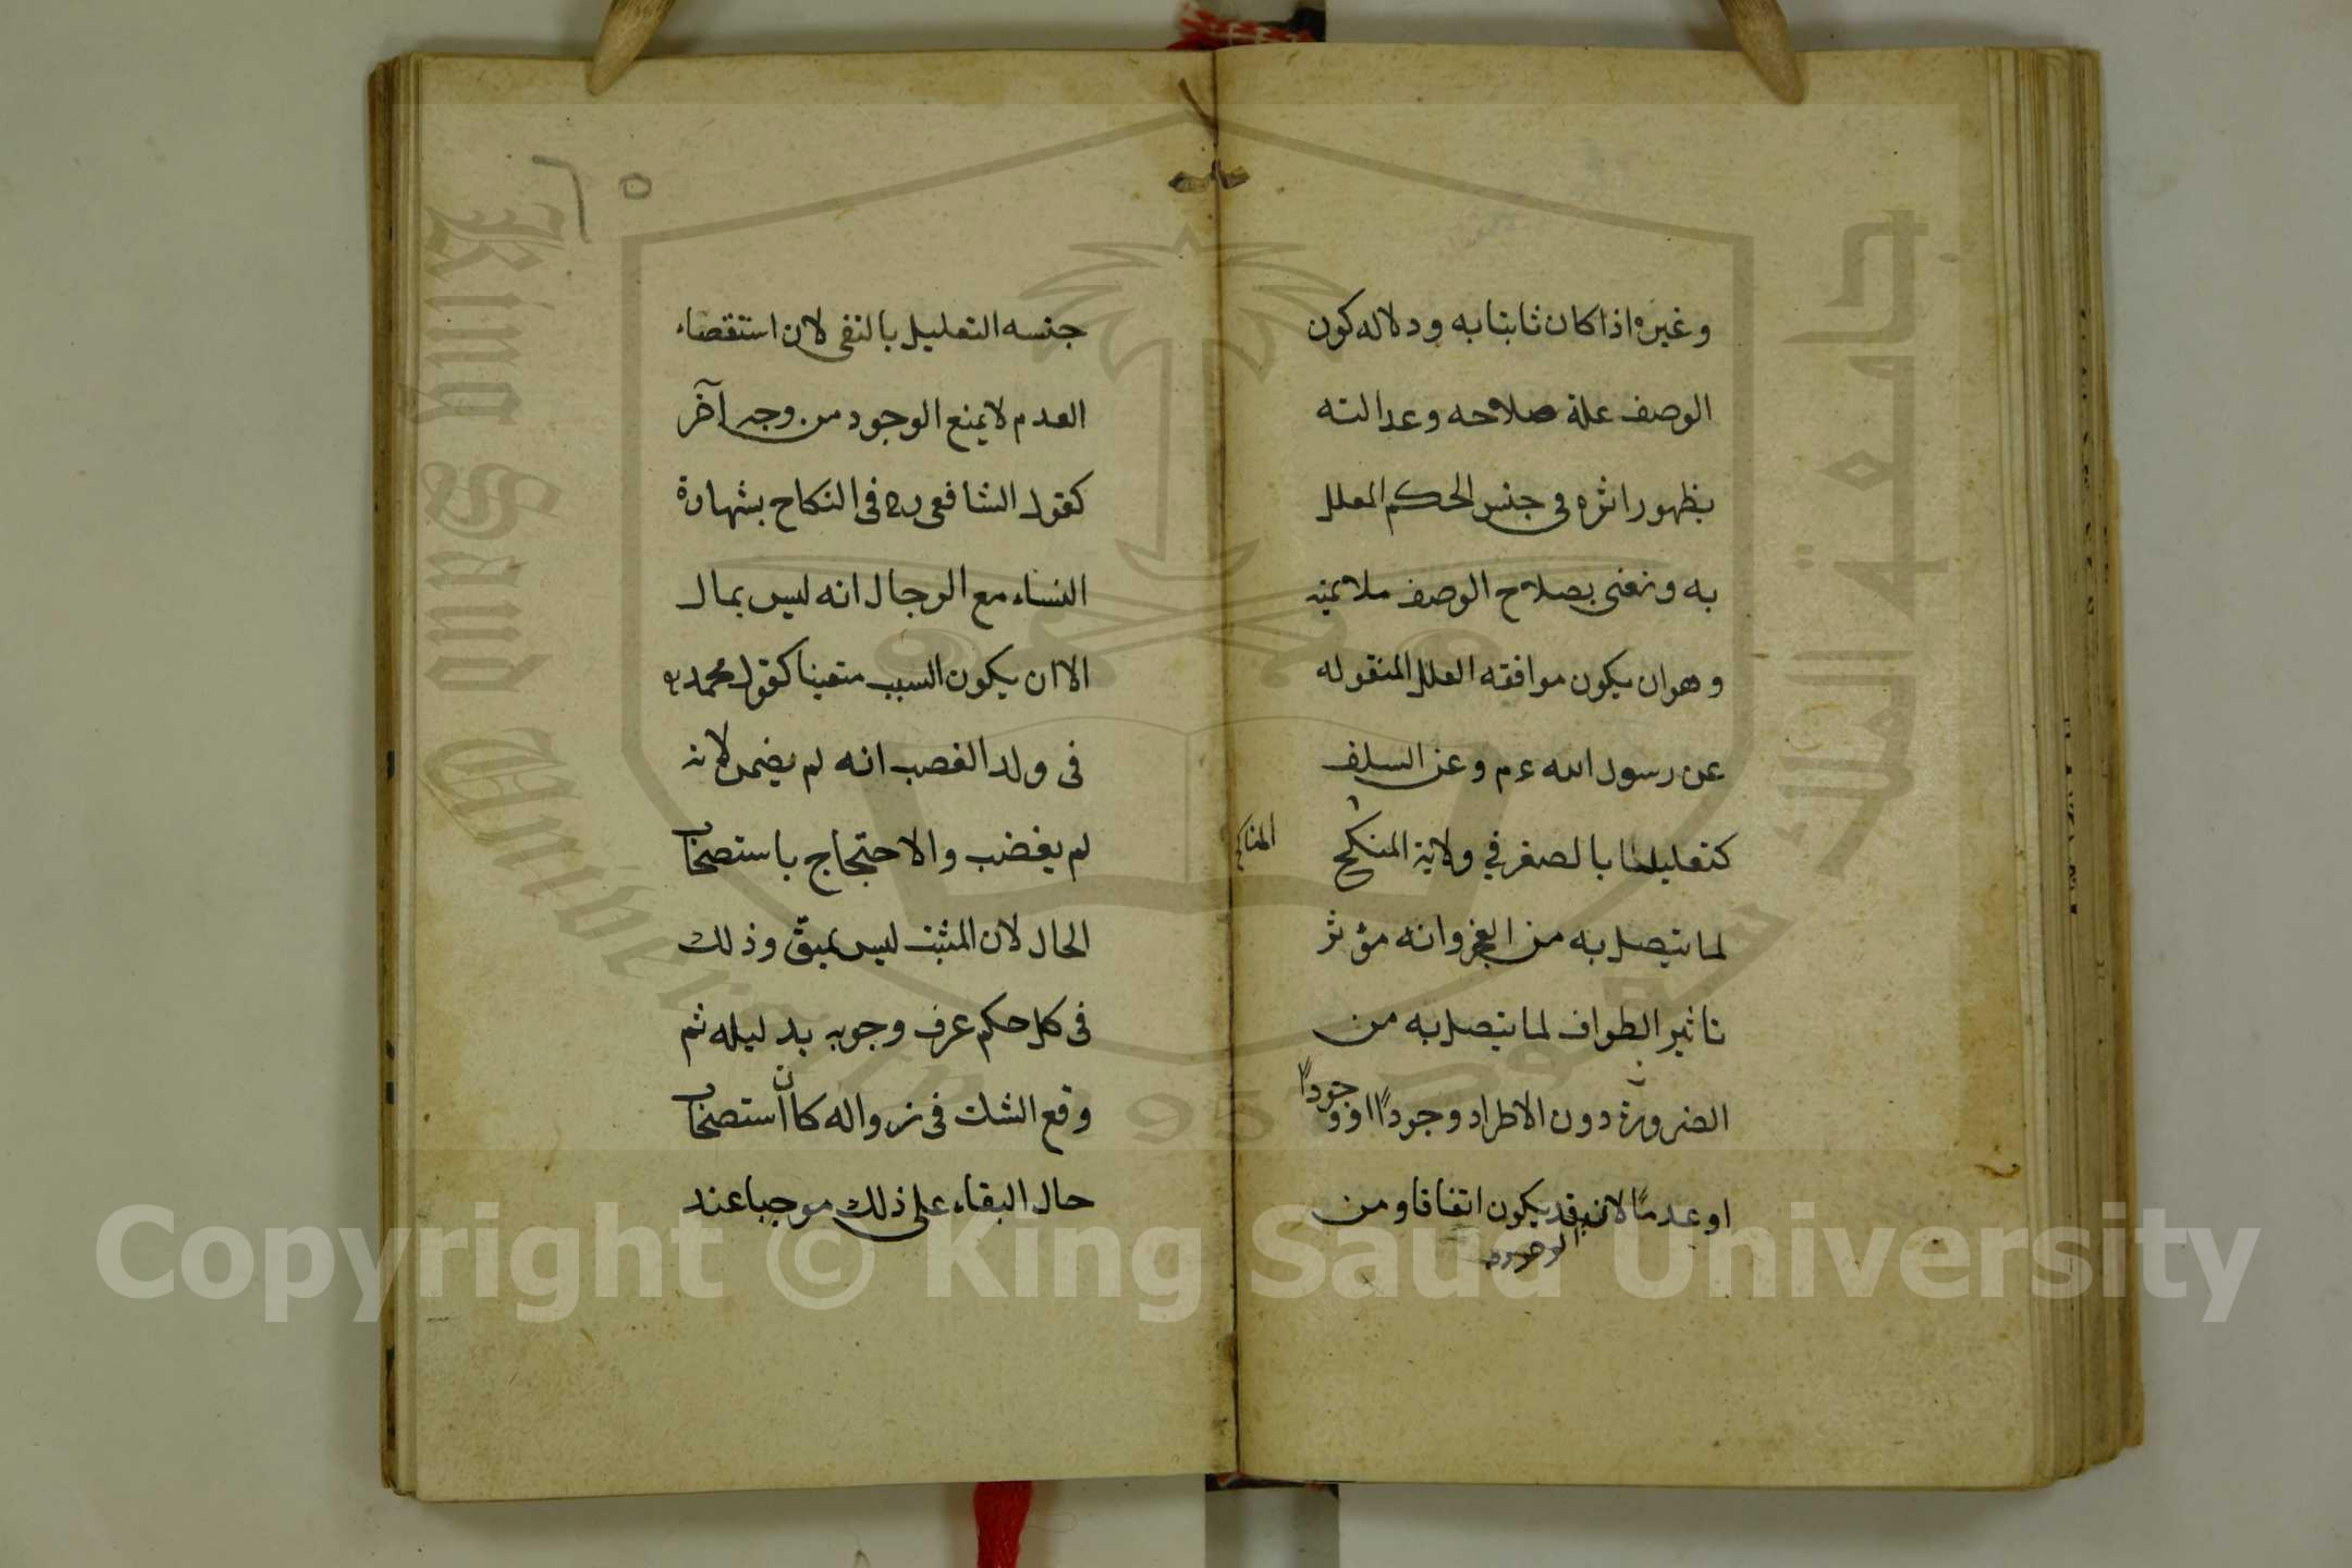 وغيره اذا كان ثابتا به ودلاله كون
الوصف علة صلاحه وعدالته
بظهور اثره في جنس الحكم المعلل
به ونعنى بصلاح الوصف ملايمته
وهو ان يكون موافقه العلل المنقوله
عن رسول الله ءم وعن السلف
كتعليلنا بالصغر في ولاية المنكح
المناكح
لما يتصل به من العجز وانه مؤثر
تاثير الطواف لما يتصل به من
الضرورة دون الاطراد وجوداً او وجوداً
او عدماً لانه قد يكون اتفاقا ومن
الوجود
٢٥
جنسه التعليل بالنفى لان استقصاء
العدم لا يمنع الوجود من وجه آخر
كقول الشافعى رح فى النكاح بشهادة
النساء مع الرجال انه ليس بمال
الا ان يكون السبب متعينا كقول محمد
فى ولد الغصب انه لم يضمن لانه
لم يغضب والاحتجاج باستصحاب
الحال لان المثبت ليس بمبق وذلك
فى كل حكم عرف وجوبه بدليله ثم
وقع الشك فى زواله كان استصحاب
حال البقاء على ذلك موجبا عند
جامعة الملك سعود
King Saud University
95
Copyright © King Saud University